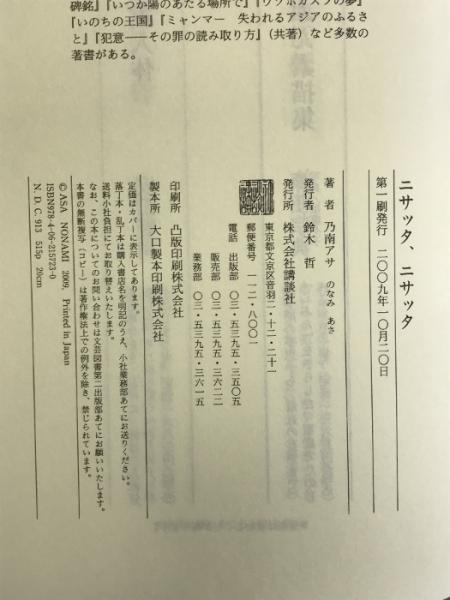 碑銘』『いつか陽のあたる場所で』『ウツボカズラの夢』
『いのちの王国』『ミャンマー　失われるアジアのふるさ
と』『犯意――その罪の読み取り方』（共著）など多数の
著書がある。
ニサッタ、ニサッタ
第一刷発行　二〇〇九年一〇月二〇日
著　者　乃南アサ　のなみ　あさ
発行者　鈴木　哲
発行所　株式会社講談社
東京都文京区音羽二・一二・二一
郵便番号　一一二・八〇〇一
電話　出版部　〇三・五三九五・三五〇五
販売部　〇三・五三九五・三六二二
業務部　〇三・五三九五・三六一五
印刷所　凸版印刷株式会社
製本所　大口製本印刷株式会社
定価はカバーに表示してあります。
落丁本・乱丁本は購入書店名を明記のうえ、小社業務部あてにお送りください。
送料小社負担にてお取り替えいたします。
なお、この本についてのお問い合わせは文芸図書第二出版部あてにお願いいたします。
本書の無断複写（コピー）は著作権法上での例外を除き、禁じられています。
© ASA NONAMI 2009, Printed in Japan
ISBN978-4-06-215723-0
N. D. C. 913 515p 20cm